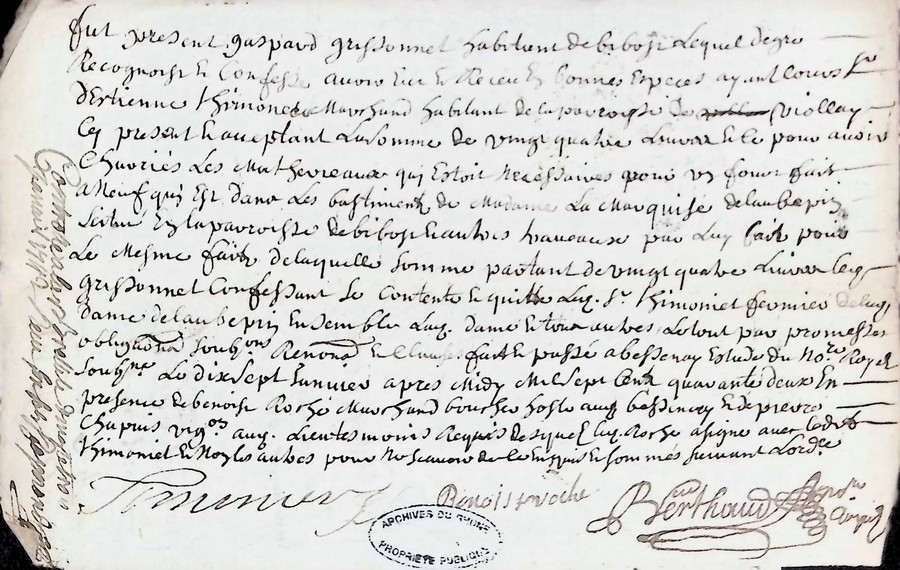 fut present gaspard grissonnet habitant de bibost Lequel de gre
Recognoist et Confesse avoir Eu et Receu En bonnes Especes ayant Cours Sr
d'Estienne thimonet Marchand habitant de la parroisse de Viollay
Cy present et aceptant La Somme de vingt quatre Livres Et ce pour avoir
Charriés Les Mathereaux quy Estoit Necessaires pour un four fait
a Neuf quy Est dans Les bastiments de Madame La Marquise delaubepin
Scitué En la parroisse de bibost Et autres travaeaux par Luy fait pour
Le Mesme fait de laquelle Somme partant de vingt quatre Livres led
grissonnet Confessant Se Contente Et quitte Led. Sr. thimonet fermier de lad
dame delaubepin Ensemble Lad. dame Et tous autres Le tout par promesses
obligaons Soubons Renonaons Et Clauses fait et passé a bessenay Estude du Nore Royal
Soubne Le dix Sept Janvier apres Midy Mil Sept Cent quarante deux En
presence de benoist Roche Marchand boucher hoste aud bessenay Et de pierre
Chapuis vigon aud. Lieu tesmoins Requis desquels Led. Roche a signé avec ledit
thimonet Et Non les autres pour Ne Scavoir de ce Enquis Et Sommes Suivant Lordce
Benoist roche
Berthaud
ARCHIVES DU RHONE
PROPRIETE PUBLIQUE